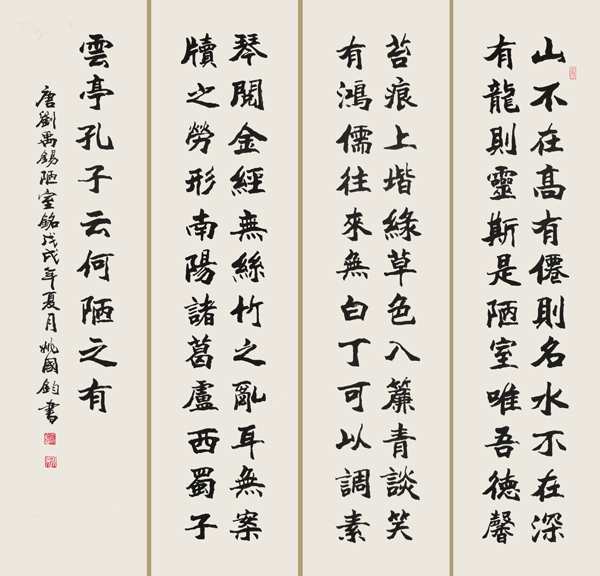 山不在高有僊則名水不在深
有龍則靈斯是陋室唯吾德馨
苔痕上堦綠草色入簾青談笑
有鴻儒往來無白丁可以調素
琴閱金經無絲竹之亂耳無案
牘之勞形南陽諸葛盧西蜀子
雲亭孔子云何陋之有
唐劉禹錫陋室銘戊戌年夏月姚國鈞書